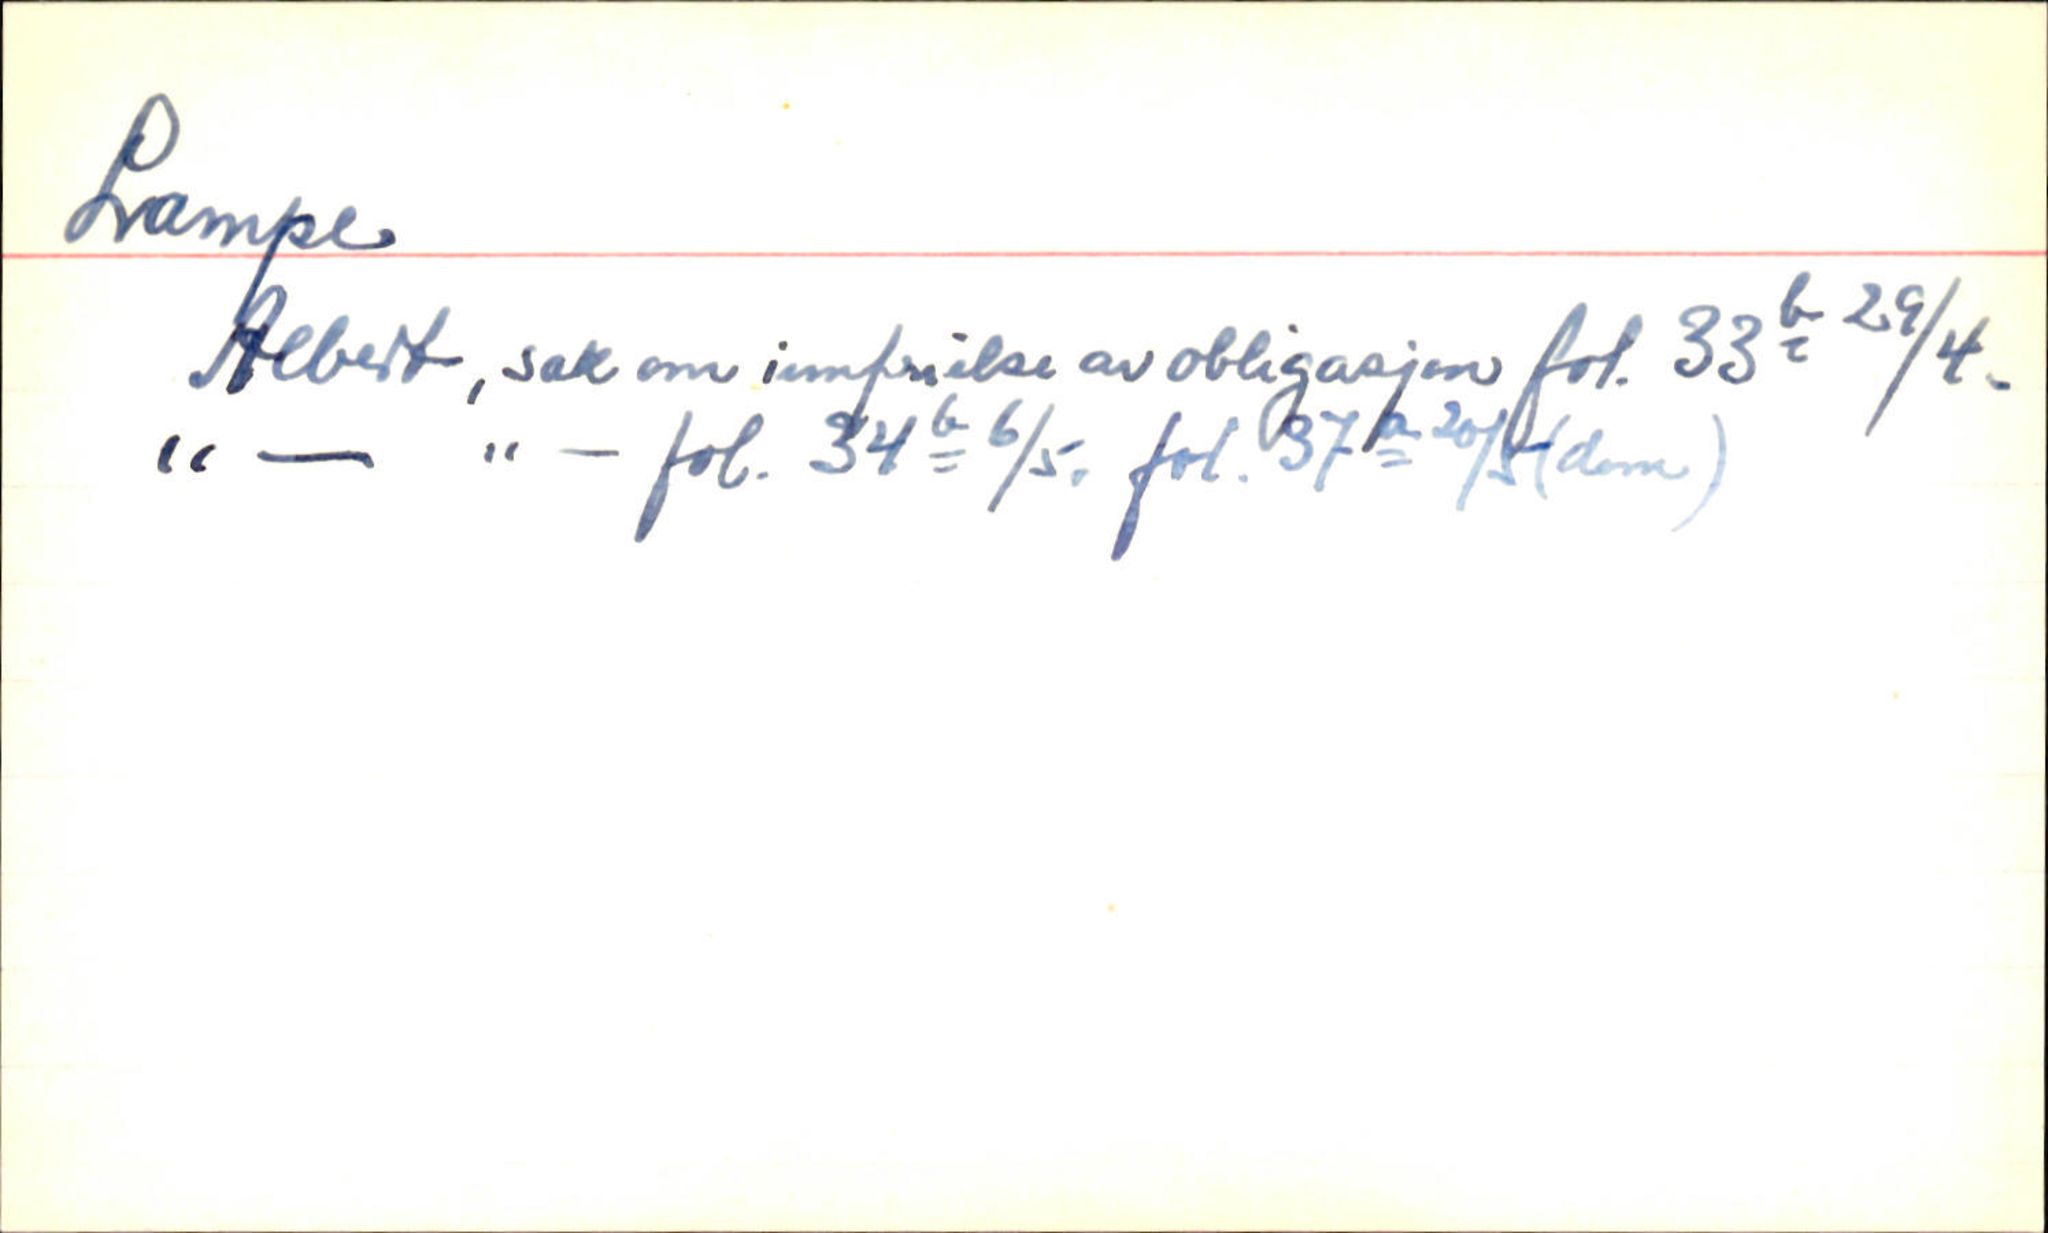 Lampe
Albert, sak om innfrielse av obligasjon fol. 33b 29/4.
" — " — fol. 34b 6/5. fol. 37a 20/5 (dom)